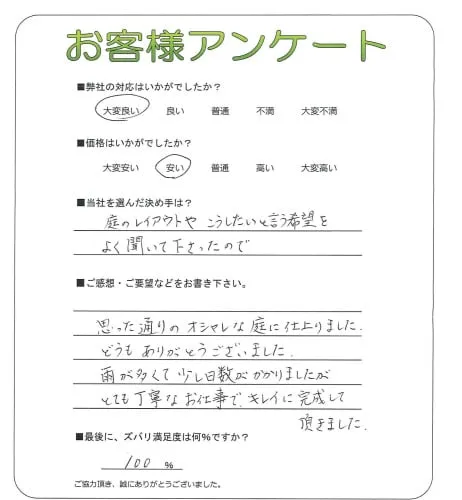 お客様アンケート
■弊社の対応はいかがでしたか？
大変良い 良い 普通 不満 大変不満
■価格はいかがでしたか？
大変安い 安い 普通 高い 大変高い
■当社を選んだ決め手は？
庭のレイアウトや こうしたいと言う希望を
よく聞いて下さったので
■ご感想・ご要望などをお書き下さい。
思った通りの オシャレな庭に仕上りました.
どうも ありがとうございました.
雨が多くて 少し日数がかかりましたが
とても丁寧なお仕事で、キレイに完成して
頂きました.
■最後に、ズバリ満足度は何%ですか？
100 %
ご協力頂き、誠にありがとうございました。